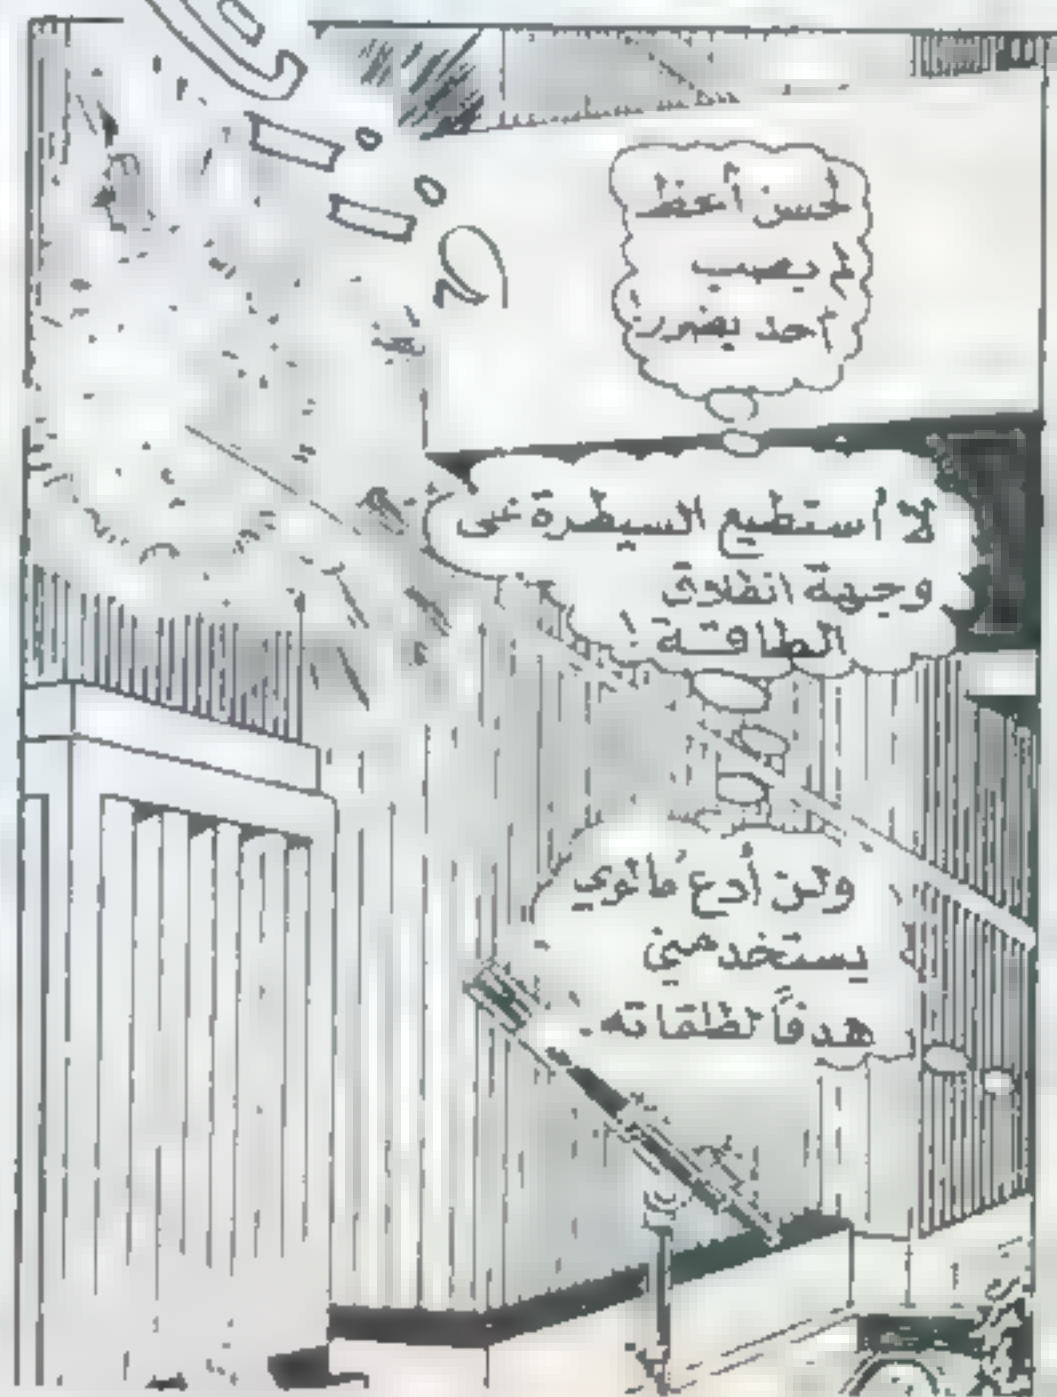 لحسن الحظ
لم يصب
أحد بضرر!
لا أستطيع السيطرة على
وجهة انطلاق
الطاقة!
ولن أدع مانوي
يستخدمني
هدفاً لطلقاته.